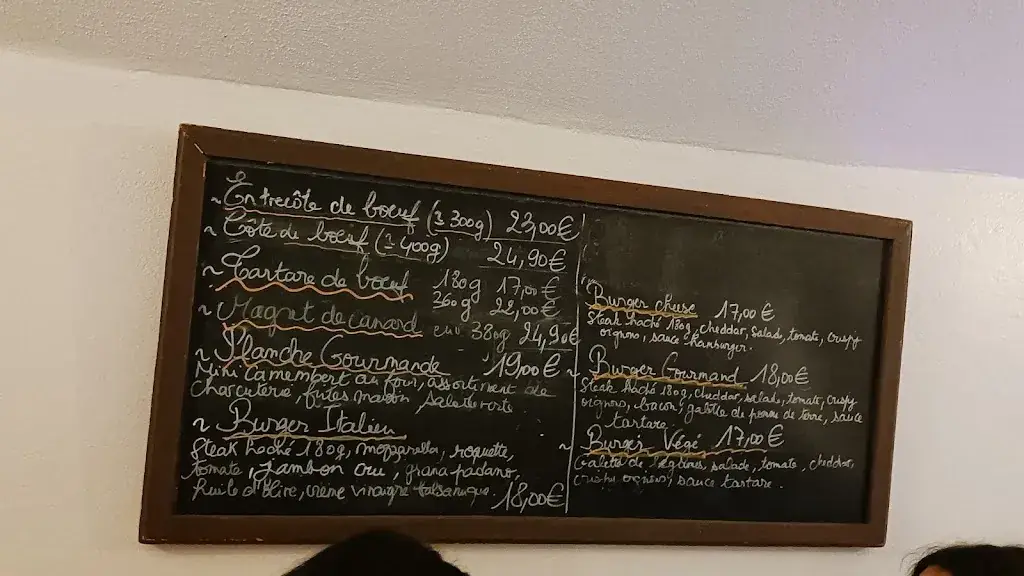 ~ Entrecôte de boeuf (± 300g) 23,00€
~ Côte de boeuf (± 400g) 24,90€
~ Tartare de boeuf 180g 17,00€
360g 22,00€
~ Magret de canard env 380g 24,90€
~ Planche Gourmande 19,00€
Mini camembert au four, assortiment de
charcuterie, frites maison salade verte
~ Burger Italien
Steak haché 180g, mozzarella, roquette,
tomate, Jambon cru, grana padano,
huile d'olive, crème vinaigre balsamique. 18,00€
Burger cheese 17,00€
Steak haché 180g, cheddar, salade, tomate, crispy
oignons, sauce hamburger.
~ Burger Gourmand 18,00€
Steak haché 180g, cheddar, salade, tomate, crispy
oignons, bacon, galette de pomme de terre, sauce
tartare
~ Burger Végé 17,00€
Galette de légumes, salade, tomate, cheddar,
crispy oignons, sauce tartare.